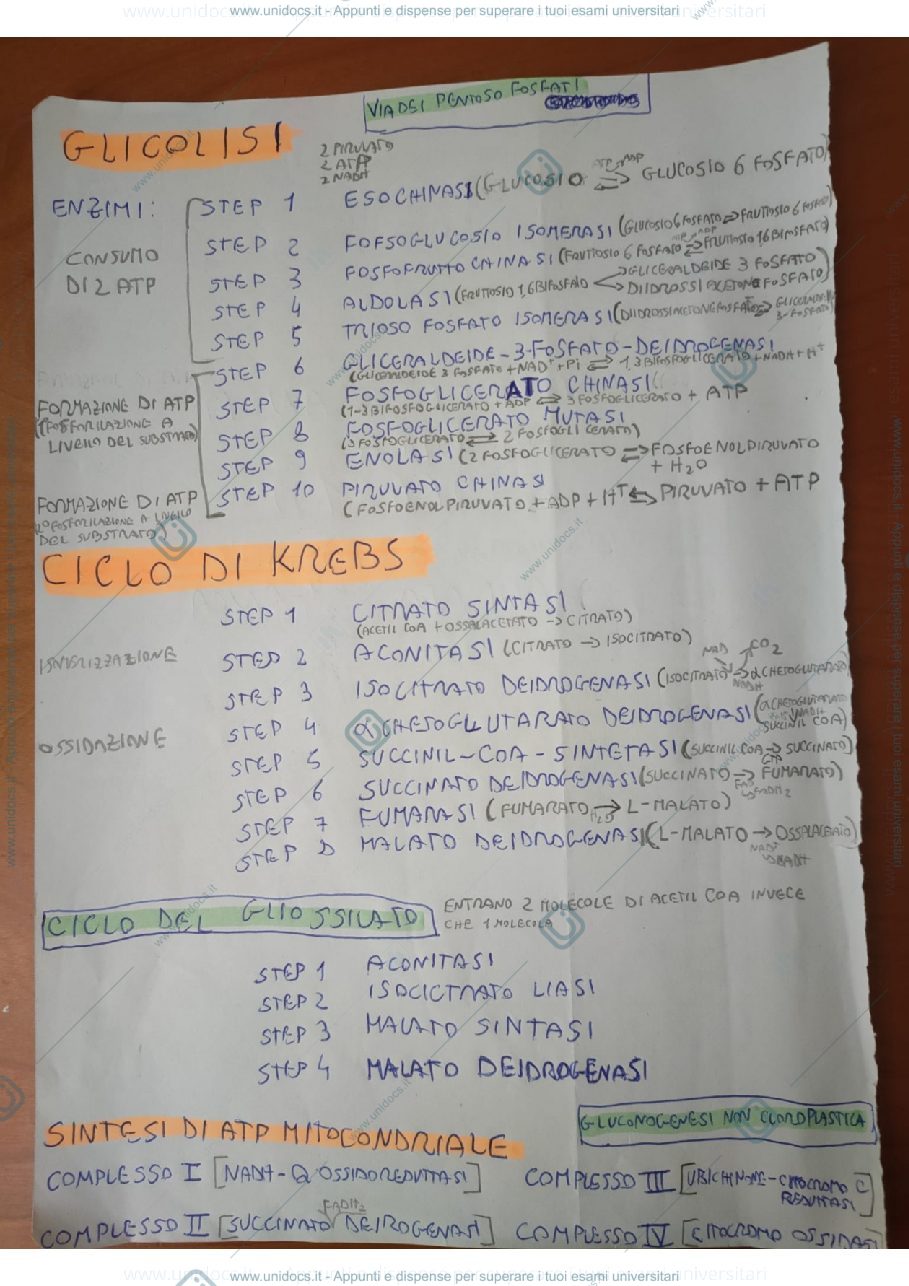 www.unidocs.it - Appunti e dispense per superare i tuoi esami universitari
VIA DEI PENTOSO FOSFATI
GLICOLISI
2 PIRUVATO
2 ATP
2 NADH
ENZIMI:
CONSUMO
DI 2 ATP
STEP 1 ESOCHINASI (GLUCOSIO ATP ADP ⇌ GLUCOSIO 6 FOSFATO)
STEP 2 FOFSOGLUCOSIO ISOMERASI (GLUCOSIO 6 FOSFATO ⇌ FRUTTOSIO 6 FOSFATO)
STEP 3 FOSFOFRUTTO CHINASI (FRUTTOSIO 6 FOSFATO ⇌ FRUTTOSIO 1,6 BIFOSFATO)
STEP 4 ALDOLASI (FRUTTOSIO 1,6 BIFOSFATO → GLICERALDEIDE 3 FOSFATO
→ DIIDROSSI ACETONE FOSFATO)
STEP 5 TRIOSO FOSFATO ISOMERASI (DIIDROSSIACETONE FOSFATO ⇌ GLICERALDEIDE
3-FOSFATO)
STEP 6 GLICERALDEIDE-3-FOSFATO-DEIDROGENASI
(GLICERALDEIDE 3 FOSFATO + NAD+ + Pi ⇌ 1,3 BIFOSFOGLICERATO + NADH + H+
FORMAZIONE DI ATP
(1°FOSFORILAZIONE A
LIVELLO DEL SUBSTRATO)
STEP 7 FOSFOGLICERATO CHINASI
(1-3 BIFOSFOGLICERATO + ADP ⇌ 3 FOSFOGLICERATO + ATP
STEP 8 FOSFOGLICERATO MUTASI
(3 FOSFOGLICERATO ⇌ 2 FOSFOGLICERATO)
STEP 9 ENOLASI (2 FOSFOGLICERATO ⇌ FOSFOENOLPIRUVATO
+ H2O
STEP 10 PIRUVATO CHINASI
(FOSFOENOLPIRUVATO + ADP + H+ ⇌ PIRUVATO + ATP
FORMAZIONE DI ATP
2°FOSFORILAZIONE A LIVELLO
DEL SUBSTRATO)
CICLO DI KREBS
STEP 1 CITRATO SINTASI
(ACETIL CoA + OSSALACETATO → CITRATO)
ISOMERIZZAZIONE
STEP 2 ACONITASI (CITRATO → ISOCITRATO)
STEP 3 ISOCITRATO DEIDROGENASI (ISOCITRATO NAD NADH CO2 → αCHETOGLUTARATO)
OSSIDAZIONE
STEP 4 αCHETOGLUTARATO DEIDROGENASI (αCHETOGLUTARATO
NADH
SUCCINIL COA)
STEP 5 SUCCINIL-COA-SINTETASI (SUCCINIL COA → SUCCINATO)
GTP
STEP 6 SUCCINATO DEIDROGENASI (SUCCINATO → FUMARATO)
FAD FADH2
STEP 7 FUMARASI (FUMARATO → L-MALATO)
H2O
STEP 8 MALATO DEIDROGENASI (L-MALATO → OSSALACETATO)
NAD+
NADH
CICLO DEL GLIOSSILATO
ENTRANO 2 MOLECOLE DI ACETIL COA INVECE
CHE 1 MOLECOLA
STEP 1 ACONITASI
STEP 2 ISOCICTRATO LIASI
STEP 3 MALATO SINTASI
STEP 4 MALATO DEIDROGENASI
GLUCONOGENESI NON CLOROPLASTICA
SINTESI DI ATP MITOCONDRIALE
COMPLESSO I [NADH-Q OSSIDOREDUTTASI]
COMPLESSO III [UBICHINONE-CITOCROMO C
REDUTTASI]
FADH2
COMPLESSO II [SUCCINATO DEIROGENASI]
COMPLESSO IV [CITOCROMO OSSIDASI]
www.unidocs.it - Appunti e dispense per superare i tuoi esami universitari